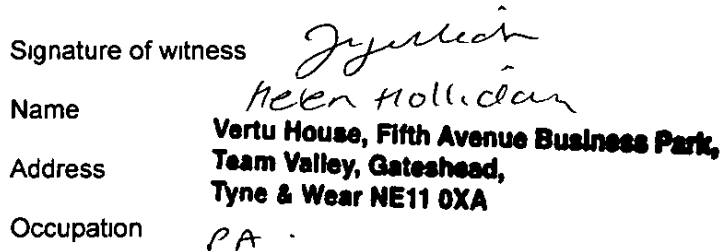 Signature of witness
Name Helen Holliday
Vertu House, Fifth Avenue Business Park,
Address Team Valley, Gateshead,
Tyne & Wear NE11 0XA
Occupation PA.